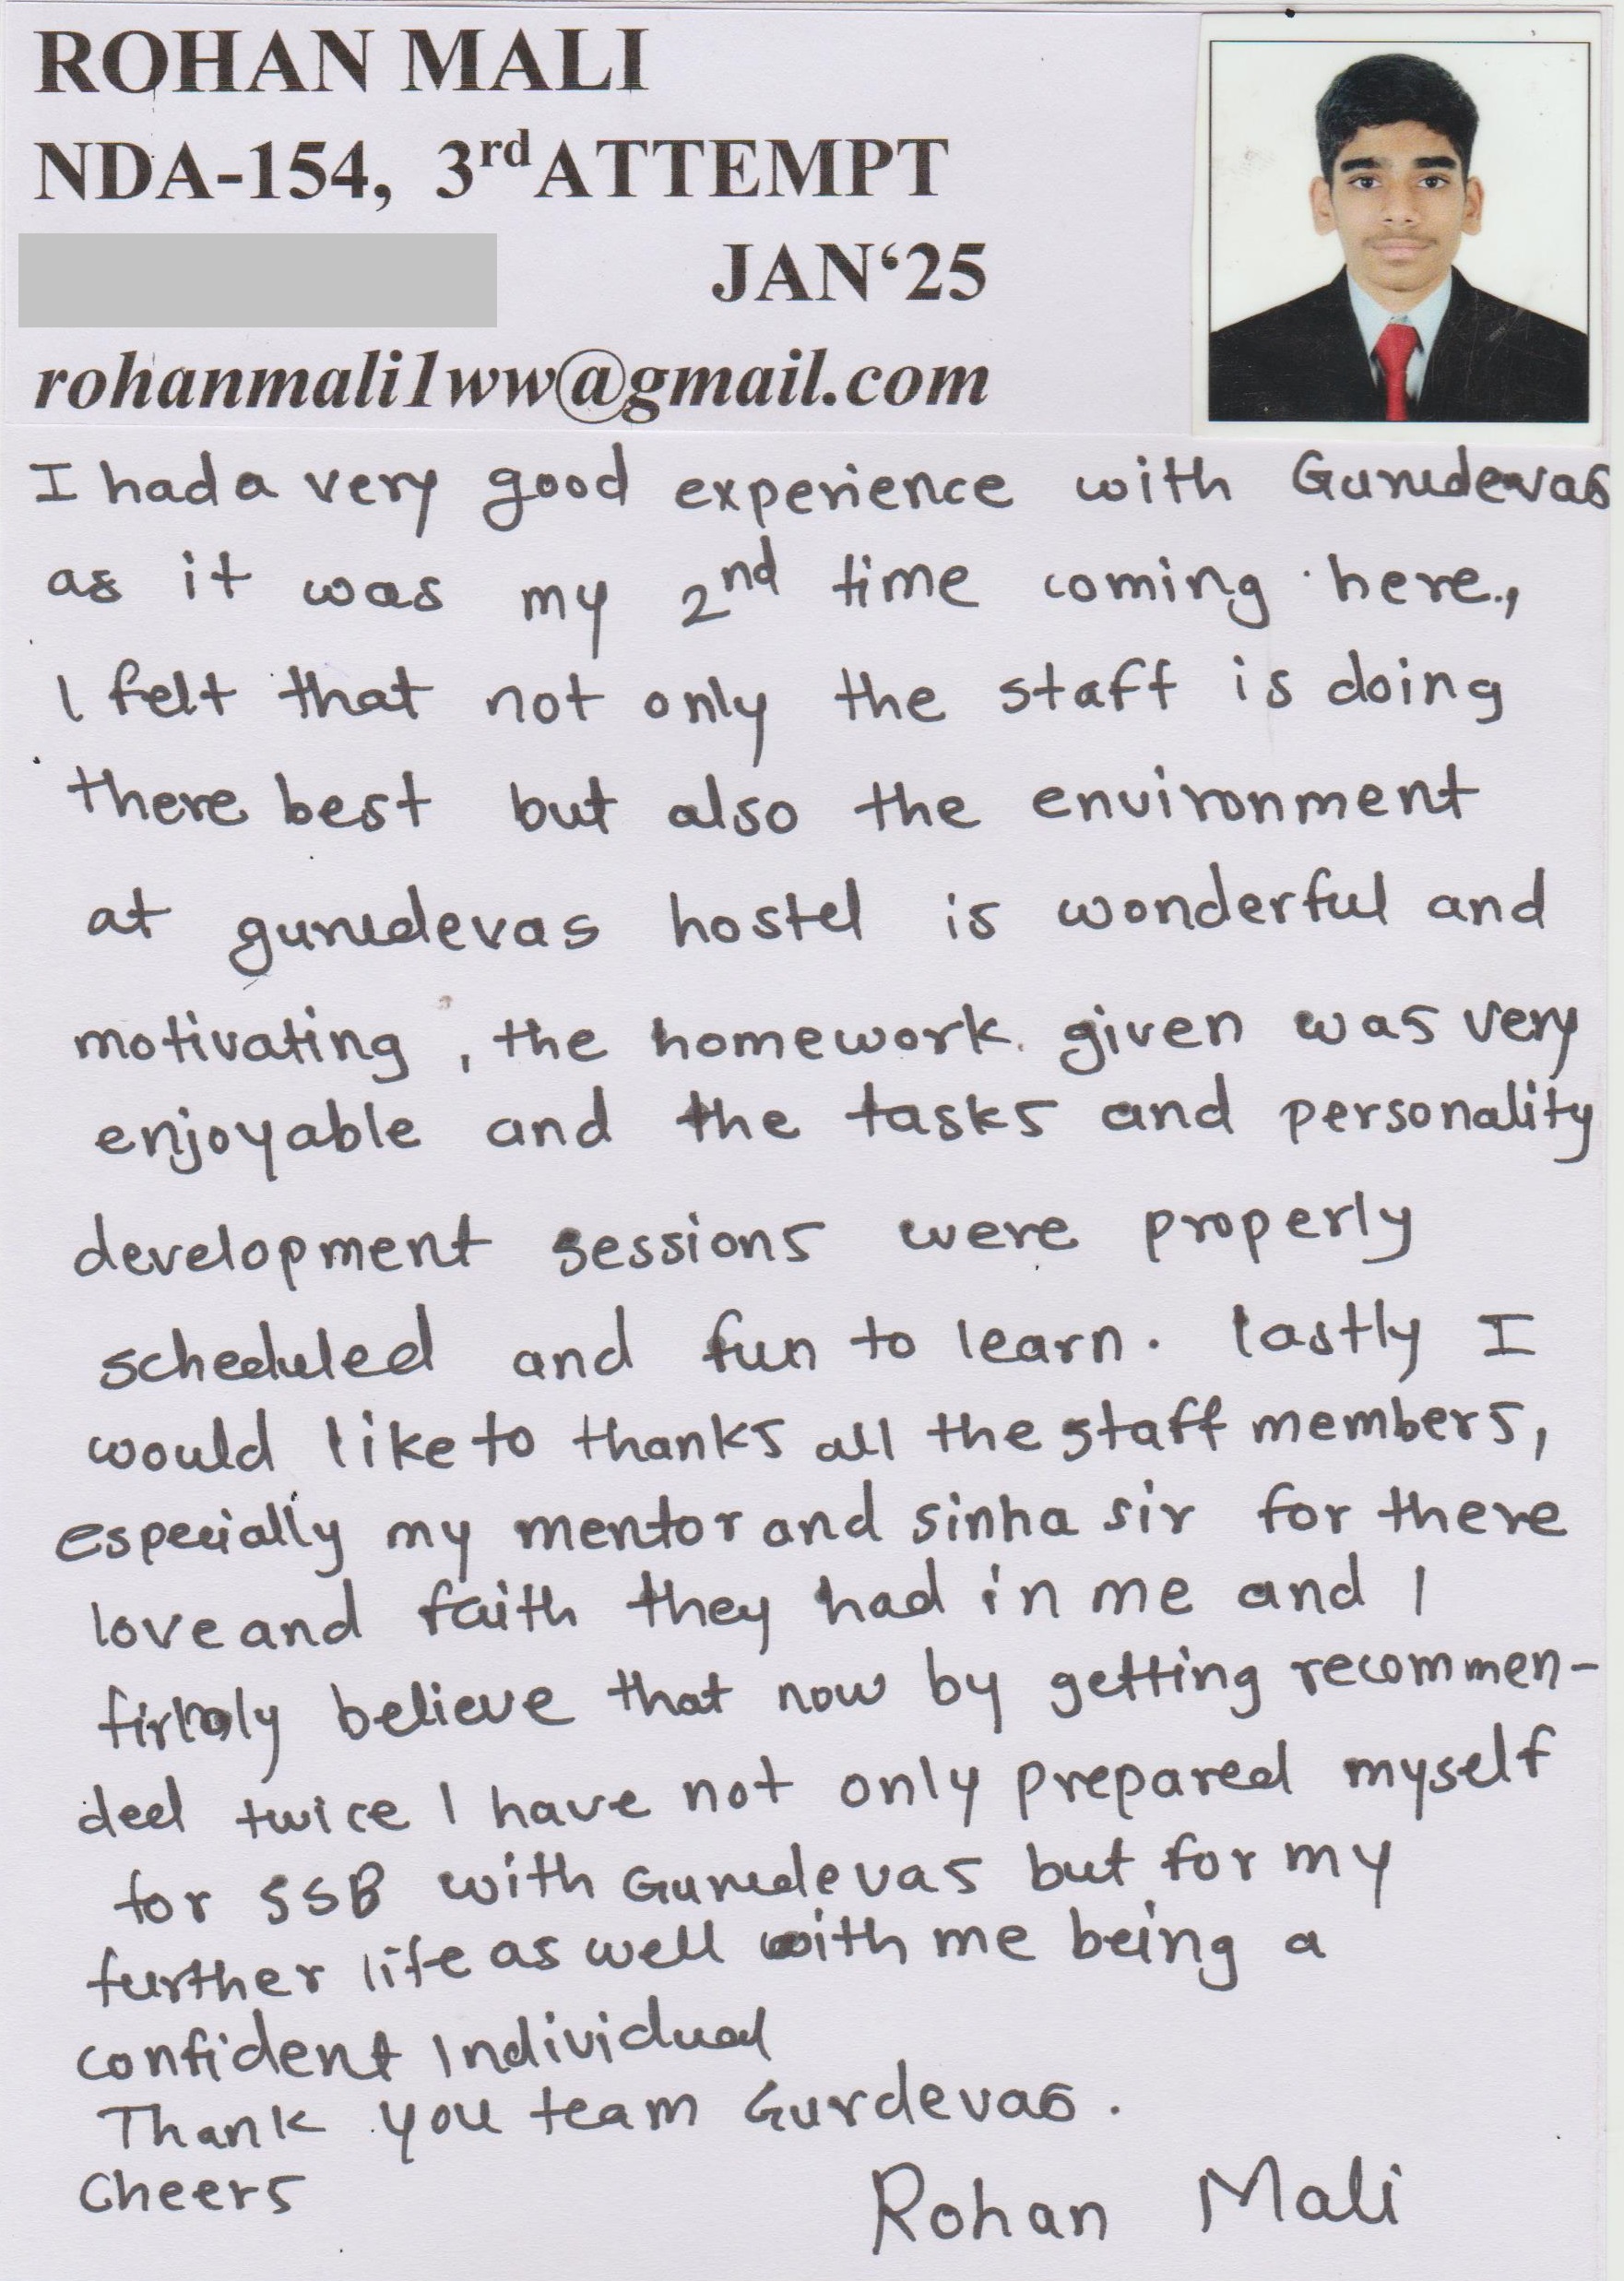 ROHAN MALI
NDA-154, 3rd ATTEMPT
JAN‘25
rohanmali1ww@gmail.com
I had a very good experience with Gurudevas
as it was my 2nd time coming here.,
I felt that not only the staff is doing
there best but also the environment
at gurudevas hostel is wonderful and
motivating , the homework. given was very
enjoyable and the tasks and personality
development sessions were properly
scheduled and fun to learn. lastly I
would like to thanks all the staff members,
especially my mentor and sinha sir for there
love and faith they had in me and I
firmly believe that now by getting recommen-
ded twice I have not only prepared myself
for SSB with Gurudevas but for my
further life as well with me being a
confident Individual
Thank you team Gurdevas.
Cheers
Rohan Mali